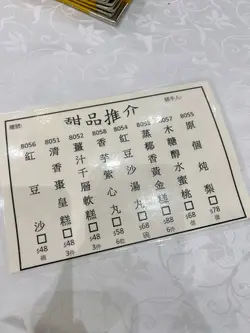 甜品推介
檯號:
經手人:
8055 原個炖梨 $78 個
木糖醇水蜜桃 $68 個
蒸椰香黃金糕 $58
8054 紅豆沙湯丸 $68 碗
8058 香芋蜜心丸 $58 6粒
8052 薑汁千層軟糕 $48 3件
8051 清香棗皇糕 $48 3件
8056 紅豆沙 $48 碗